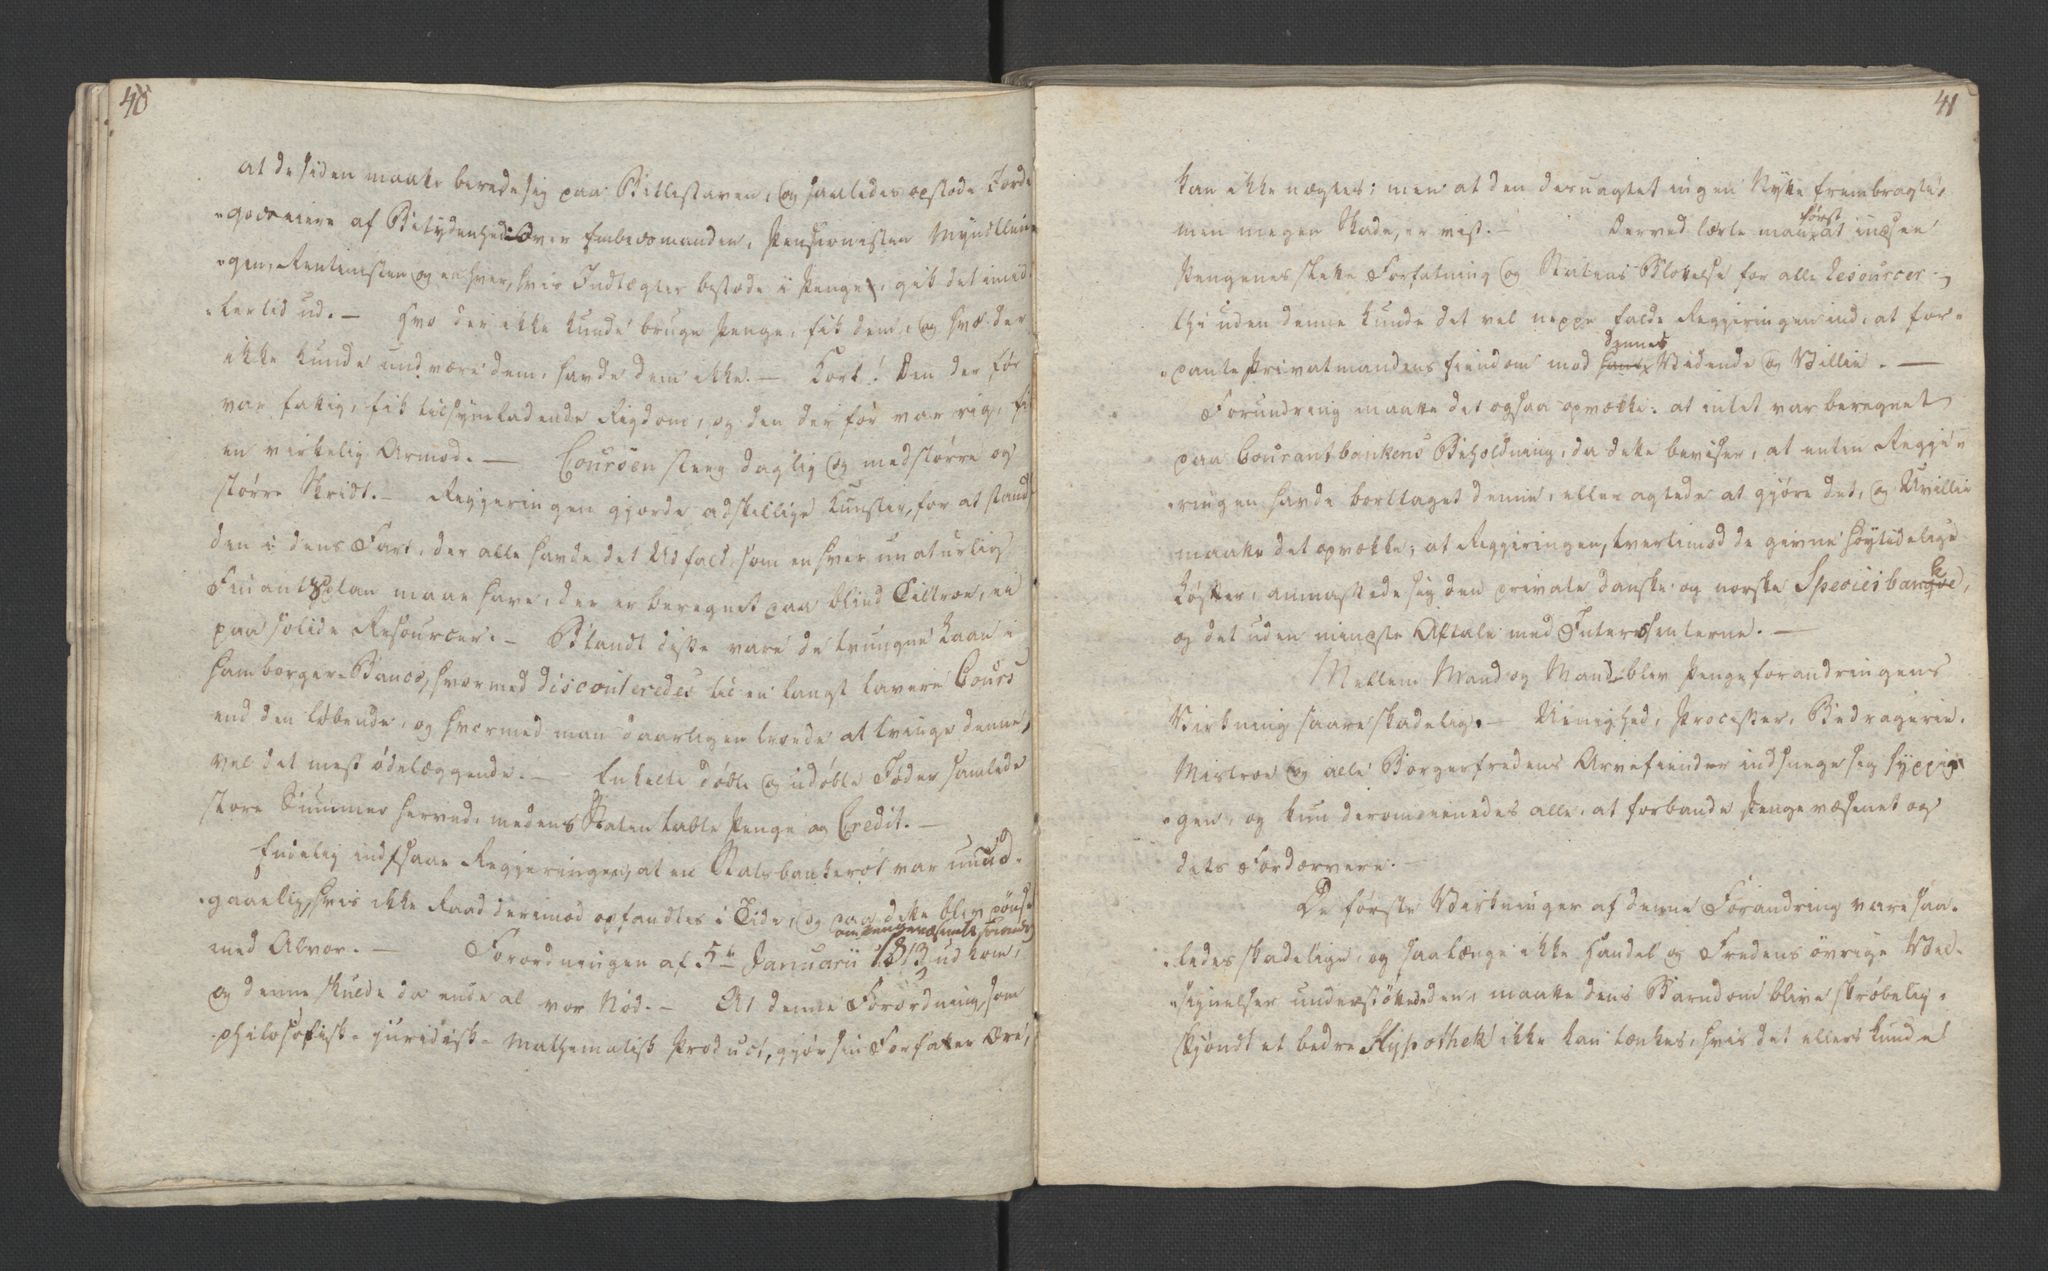 40
at de siden maatte berede sig paa Bettelstaven, og saaledes opstode Jorde
godseiere af Betydenhed. Over Embedsmanden, Pensionisten Myndlin-
gen, Rentenisten og enhver, hvis Indtægter bestode i Penge, gik det imid-
lertid ud. — Hvo der ikke kunde bruge Penge, fik dem, og hvo der
ikke kunde undvære dem, havde dem ikke. — Kort! Den der før
var fattig, fik tilsyneladende Rigdom, og den der før var rig, fik
en virkelig Armod. — Coursen steeg daglig og med større og
større Skridt. — Regjeringen gjorde adskillige Kunster, for at stands
den i dens Fart, der alle havde det Udfald, som enhver unaturlig
Finantsplan maae have, der er beregnet paa blind Tiltroe, ei
paa solide Resourcer. — Blandt disse vare de tvungne Laan i
Hamborger-Banco, hvormed disconteredes til en langt lavere Cours
end den løbende, og hvormed man daarligen troede at tvinge denne,
vel det mest ødelæggende. — Enkelte døbte og udøbte Jøder samlede
store Summer herved, medens Staten tabte Penge og Credit. —
Endelig indsaae Regjeringen, at en Statsbankerot var uund-
gaaelig, hvis ikke Raad derimod opfandtes i Tide, og paa dette blev tænkt
med Alvor. — Forordningen af 5te Januarii 1813 om Pengevæsenets Forandr udkom,
og denne skulde da ende al vor Nød. — At denne Forordning, som
philosofisk-juridisk-mathematisk Product, gjør sin Forfatter Ære,
41
kan ikke nægtes; men at den deruagtet ingen Nytte frembragte,
men megen Skade, er vist. — Derved lærte man først at indsee
Pengenes slette Forfatning og Statens Blottelse for alle Resourcer —
thi uden denne kunde det vel neppe falde Regjeringen ind, at for-
pante Privatmandens Eiendom mod hans dennes Vidende og Villie. —
Forundring maatte det ogsaa opvække, at intet var beregnet
paa Courantbankens Beholdning, da dette beviser, at enten Regje-
ringen havde borttaget denne, eller agtede at gjøre det, og Uvillie
maatte det opvække, at Regjeringen, tvertimod de givne høytidelige
Løfter, anmassede sig den private danske og norske Speciesbanqve k,
og det uden mindste Aftale med Interessenterne. —
Mellem Mand og Mand blev Pengeforandringens
Virkning saare skadelig. — Uenighed, Processer, Bedragerie,
Mistroe og alle Borgerfredens Arvefiender indsnege sig hyppi-
gen, og kun derom eenedes alle, at forbande Pengevæsenet og
dets Fordærvere. —
De første Virkninger af denne Forandring vare saa-
ledes skadelige, og saalænge ikke Handel og Fredens övrige Vel-
signelser understöttede den, maatte dens Barndom blive skrøbelig,
skjöndt et bedre Hypothek ikke kan tænkes, hvis det ellers kunde